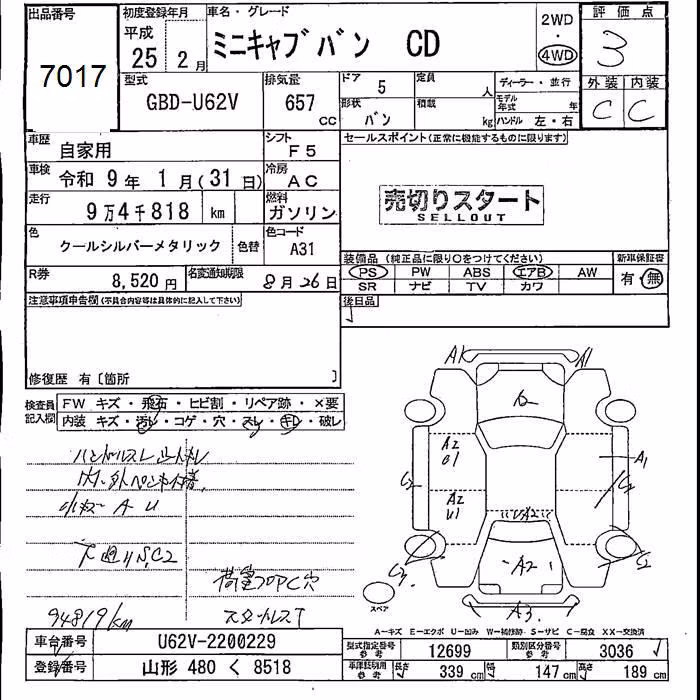 出品番号
7017
初度登録年月
平成
25 2 月
車名・グレード
ミニキャブバン CD
2WD
・
4WD
評価点
3
外装 内装
C C
型式
GBD-U62V
排気量
657 cc
ドア
5
形状
バン
定員
人
積載
kg
ディーラー・並行
モデル年式 年
ハンドル 左・右
車歴
自家用
シフト
F5
車検
令和 9年 1月(31日)
冷房
AC
走行
9万4千818 km
燃料
ガソリン
色
クールシルバーメタリック
色替
色コード
A31
R券
8,520円
名変通知期限
8月26日
セールスポイント(正常に機能するものに限ります)
売切りスタート
SELLOUT
装備品(純正品に限り○をつけてください)
PS PW ABS エアB AW
SR ナビ TV カワ
新車保証書
有・無
後日品
注意事項申告欄(不具合内容等は具体的に記入して下さい)
修復歴 有〔箇所 〕
検査員記入欄
FW キズ・飛石・ヒビ割・リペア跡・×要
内装 キズ・汚レ・コゲ・穴・スレ・キレ・破レ
ハンドルスレ
小キズ A U
下廻りS,C2
94819km
A1 A1
A2
U1
A2
U1
A1
A2
C2
A2
A3
スペア
A-キズ E-エクボ U-凹み W-補修跡 S-サビ C-腐食 XX-交換済
車台番号
U62V-2200229
登録番号
山形 480 く 8518
型式指定番号 参考
12699
類別区分番号 参考
3036
車庫証明用 参考
長さ 339 cm
幅 147 cm
高さ 189 cm